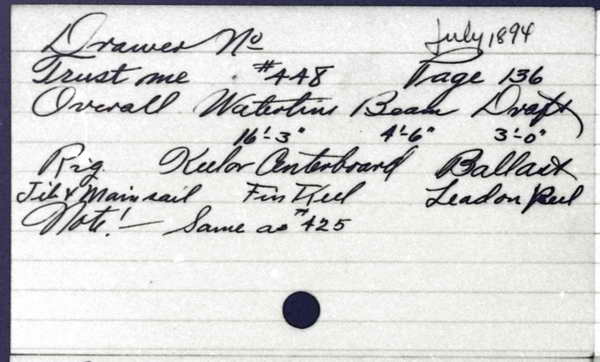 Drawer No July 1894
Trust me #448 Page 136
Overall Waterline Beam Draft
16'-3" 4'-6" 3'-0"
Rig Keel or Centerboard Ballast
Jib & Mainsail Fin Keel Lead on Keel
Note! — Same as #425